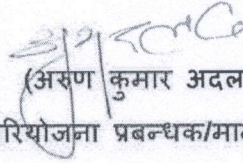 (अरुण कुमार अदल
रियोजना प्रबन्धक/मा